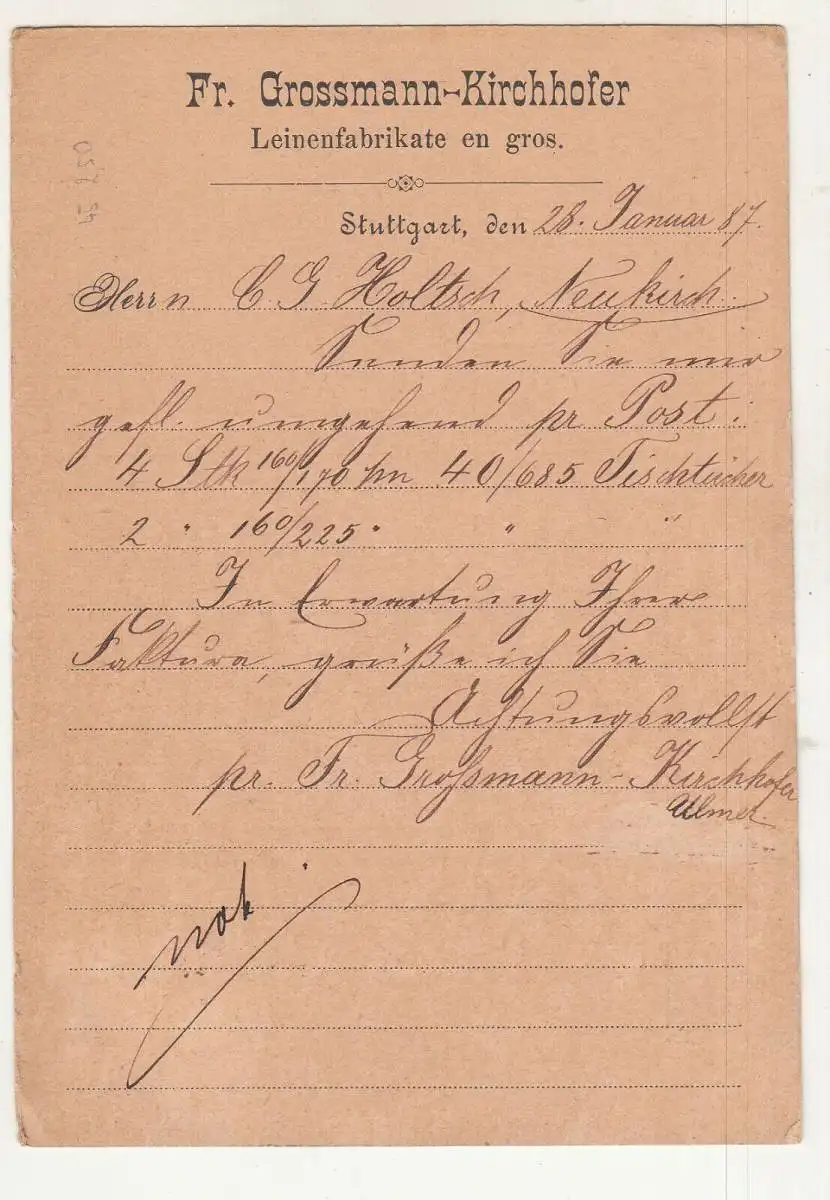 Fr. Grossmann-Kirchhofer
Leinenfabrikate en gros.
Stuttgart, den 28. Januar 87.
Herrn C. G. Holtsch, Neukirch.
Senden Sie mir
gefl. umgehend pr Post:
4 Stk 160/170 pn 40/685 Tischtücher
2 " 160/225 " " "
In Erwartung Ihrer
Faktura, grüße ich Sie
Achtungsvollst
pr. Fr. Großmann-Kirchhofer
Ulmer.
not